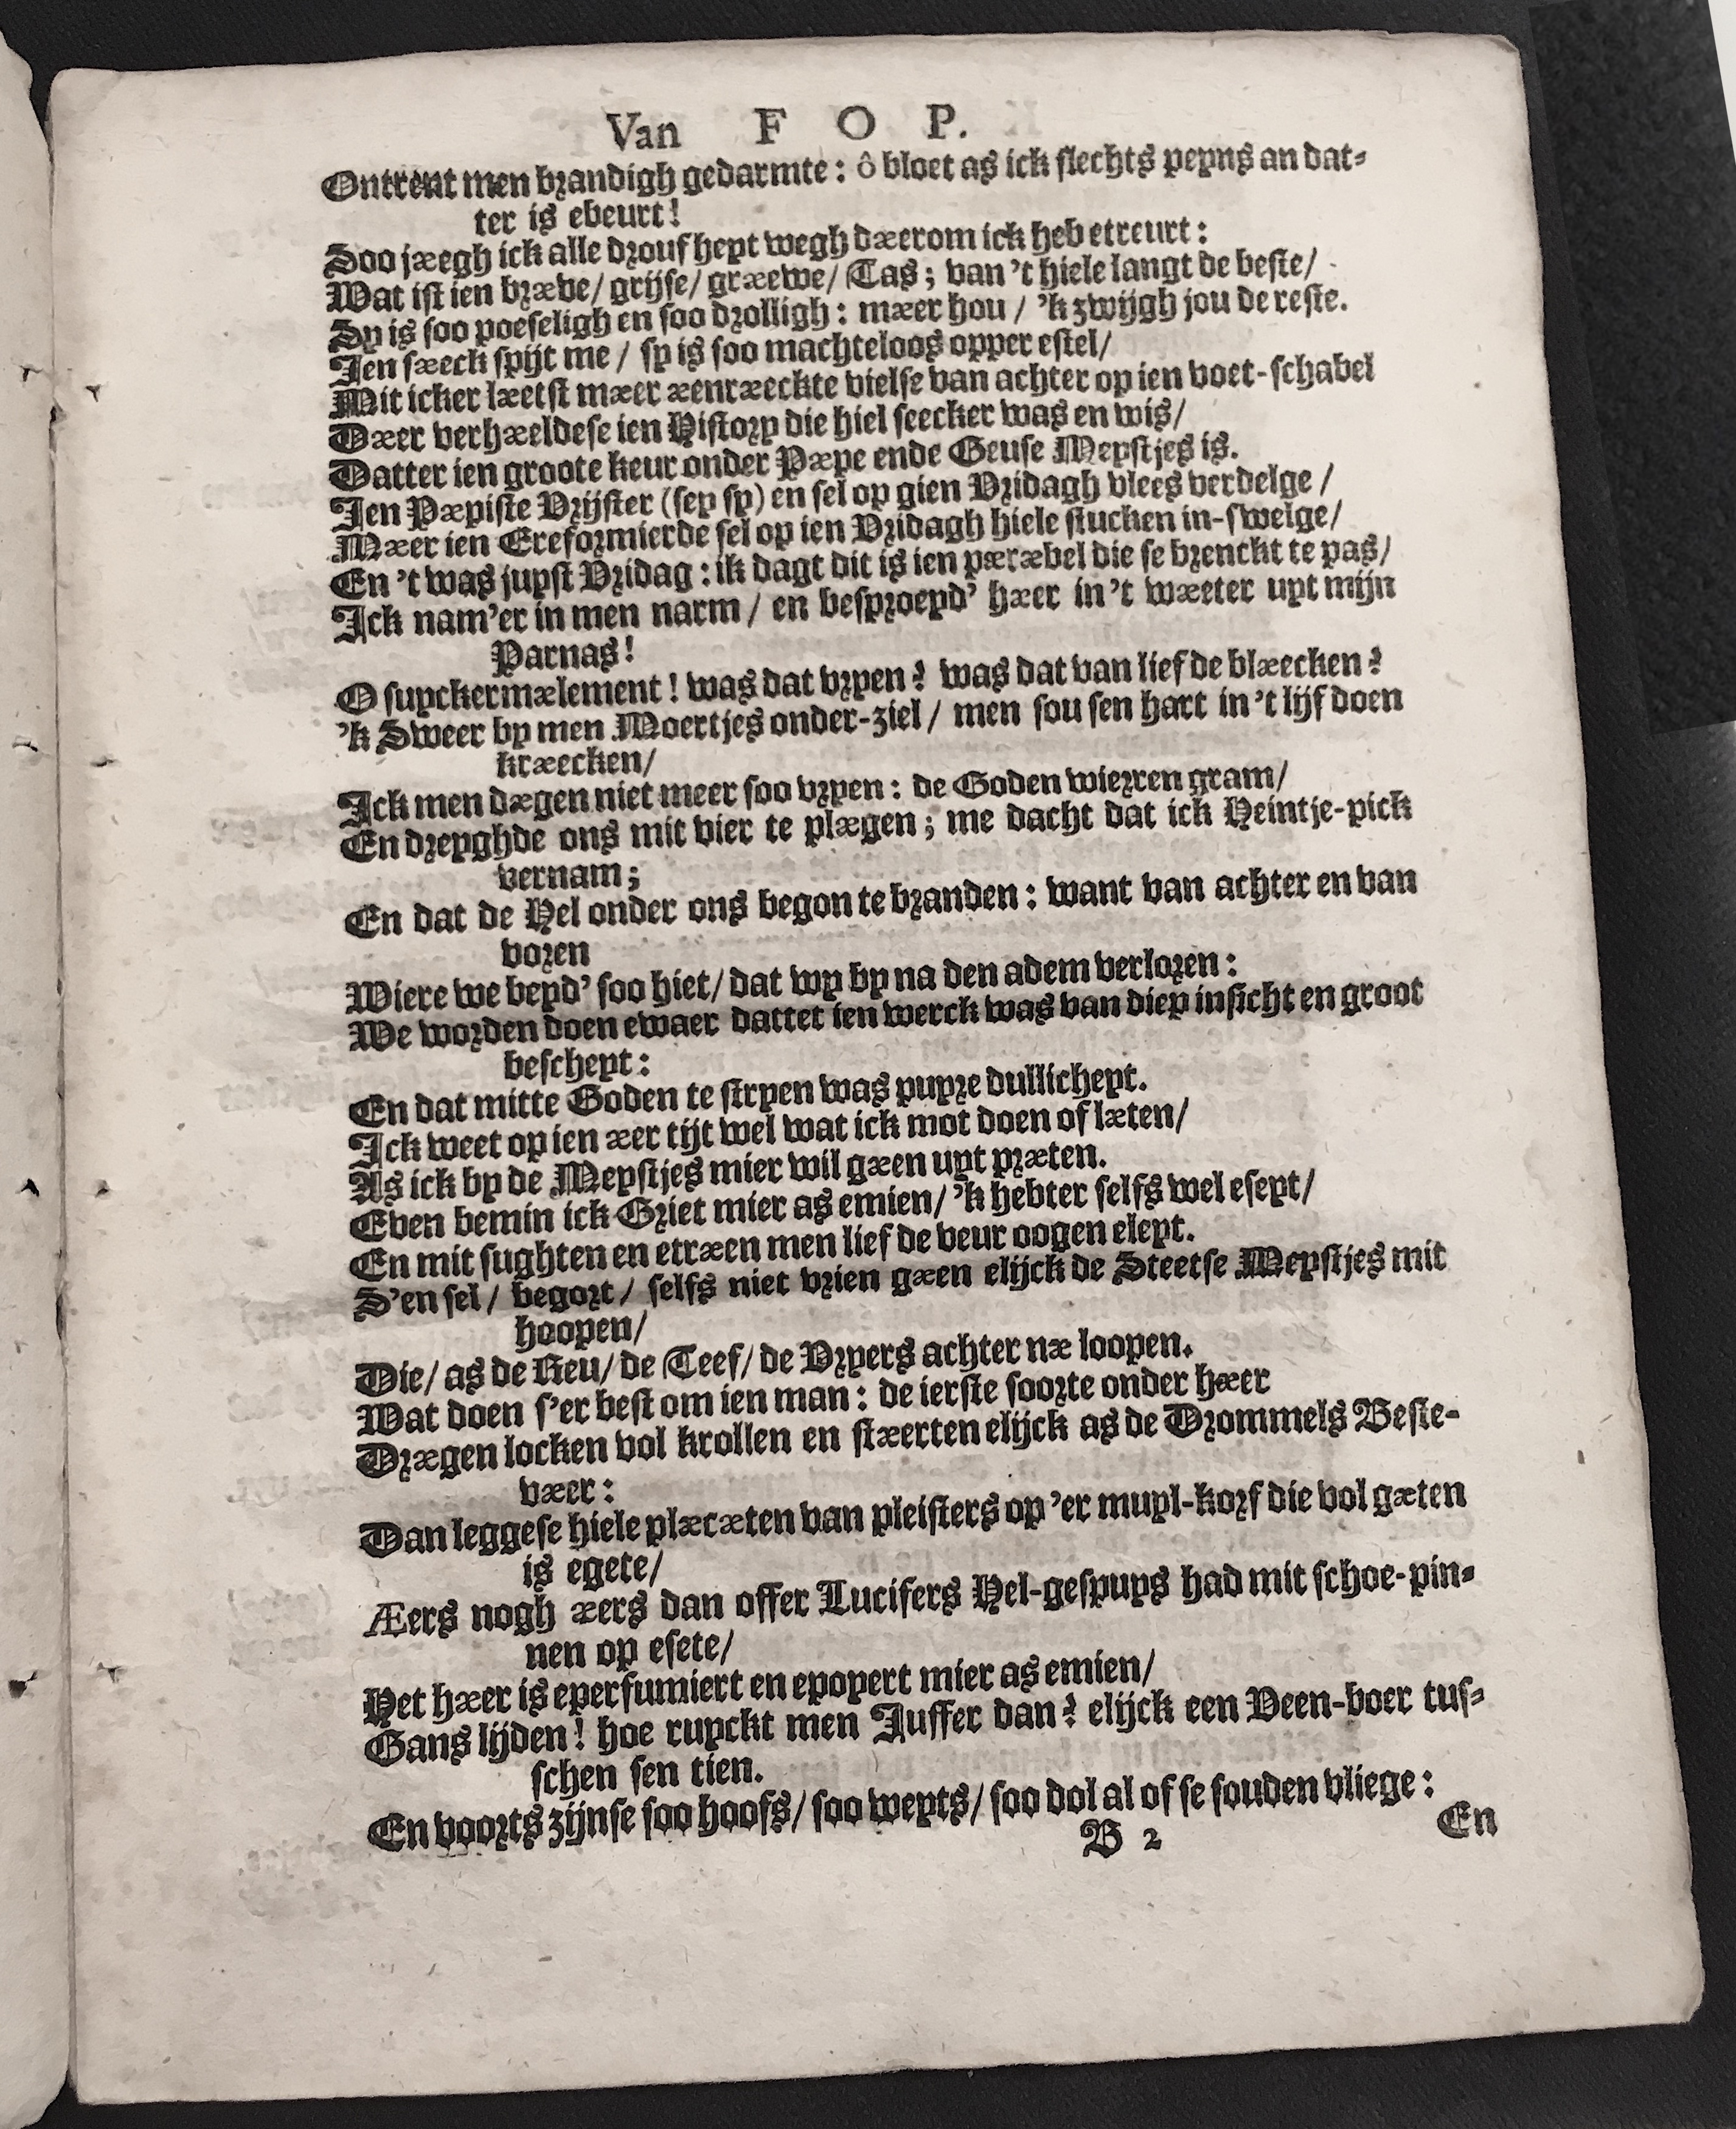 Van F O P.
Ontrent men brandigh gedarmte: ô bloet as ick slechts peyns an dat-
ter is ebeurt!
Soo jæegh ick alle droufheyt wegh dæerom ick heb etreurt:
Wat ist ien bræve/ grijse/ græewe/ Tas; van 't hiele langt de beste/
Sy is soo poeseligh en soo drolligh: mæer hou / 'k zwijgh jou de reste.
Ien sæeck spijt me / sy is soo machteloos opper estel/
Mit icker læetst mæer æenræeckte vielse van achter op ien voet-schabel
Dæer verhæeldese ien History die hiel seecker was en wis/
Datter ien groote keur onder Pæpe ende Geuse Meystjes is.
Ien Pæpiste Vrijster (sey sy) en sel op gien Vridagh vlees verdelge /
Mæer ien Ereformierde sel op ien Vridagh hiele stucken in-swelge/
En 't was juyst Vridag: ik dagt dit is ien pæræbel die se brenckt te pas/
Ick nam'er in men narm / en besproeyd' hæer in 't wæeter uyt mijn
Parnas!
O suyckermælement! was dat vryen? was dat van liefde blæecken?
'k Sweer by men Moertjes onder-ziel / men sou sen hart in 't lijf doen
kræecken/
Ick men dægen niet meer soo vryen: de Goden wierren gram/
En dreyghde ons mit vier te plægen; me dacht dat ick Heintje-pick
vernam;
En dat de Hel onder ons begon te branden: want van achter en van
voren
Wiere we beyd' soo hiet/ dat wy by na den adem verloren:
We worden doen ewaer dattet ien werck was van diep insicht en groot
bescheyt:
En dat mitte Goden te stryen was puyre dullicheyt.
Ick weet op ien æer tijt wel wat ick mot doen of læten/
As ick by de Meystjes mier wil gæen uyt præten.
Even bemin ick Griet mier as emien/ 'k hebter selfs wel eseyt/
En mit sughten en etræen men liefde veur oogen eleyt.
S'en sel / begort / selfs niet vrien gæen elijck de Steetse Meystjes mit
hoopen/
Die/ as de Reu/ de Teef/ de Vryers achter næ loopen.
Wat doen s'er best om ien man: de ierste soorte onder hæer
Drægen locken vol krollen en stæerten elijck as de Drommels Beste-
væer:
Dan leggese hiele plæcæten van pleisters op 'er muyl-korf die vol gæten
is egete/
Æers nogh æers dan offer Lucifers Hel-gespuys had mit schoe-pin-
nen op esete/
Het hæer is eperfumiert en epoyert mier as emien/
Gans lijden! hoe ruyckt men Juffer dan? elijck een Veen-boer tus-
schen sen tien.
En voorts zijnse soo hoofs/ soo weyts/ soo dol al of se souden vliege:
B 2
En